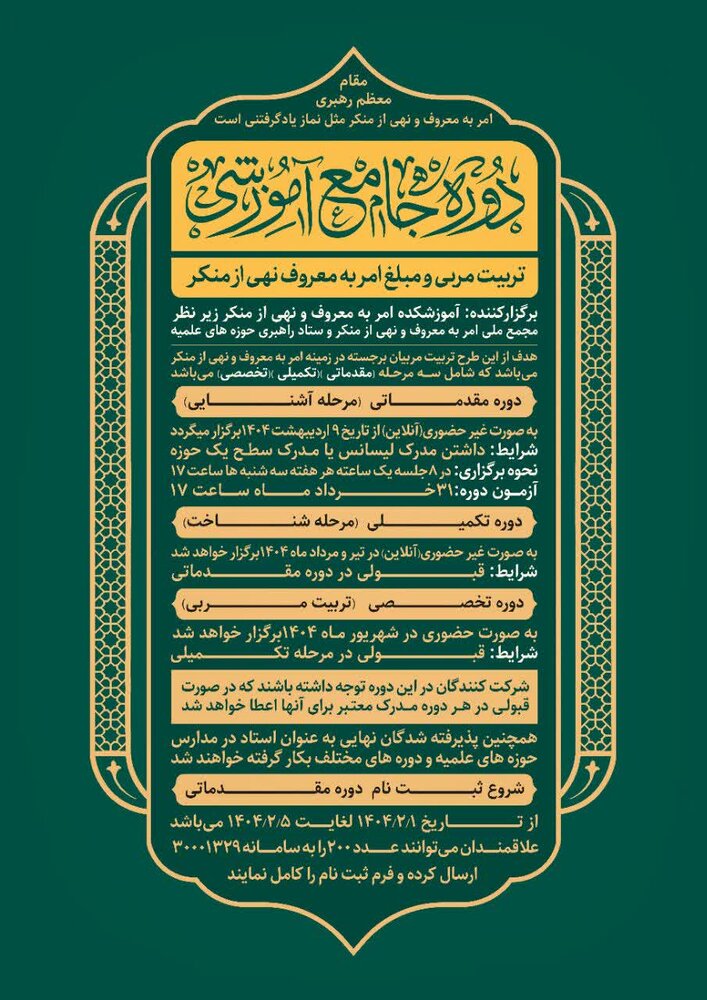 مقام
معظم رهبری
امر به معروف و نهی از منکر مثل نماز یادگرفتنی است
دوره جامع آموزشی
تربیت مربی و مبلغ امر به معروف نهی از منکر
برگزارکننده: آموزشکده امر به معروف و نهی از منکر زیر نظر
مجمع ملی امر به معروف و نهی از منکر و ستاد راهبری حوزه های علمیه
هدف از این طرح تربیت مربیان برجسته در زمینه امر به معروف و نهی از منکر
می‌باشد که شامل سه مرحله (مقدماتی)(تکمیلی)(تخصصی) می‌باشد
دوره مقدماتی (مرحله آشنایی)
به صورت غیر حضوری(آنلاین) از تاریخ ۹ اردیبهشت ۱۴۰۴ برگزار میگردد
شرایط: داشتن مدرک لیسانس یا مدرک سطح یک حوزه
نحوه برگزاری: در ۸ جلسه یک ساعته هر هفته سه شنبه ها ساعت ۱۷
آزمون دوره: ۳۱ خرداد ماه ساعت ۱۷
دوره تکمیلی (مرحله شناخت)
به صورت غیر حضوری(آنلاین) در تیر و مرداد ماه ۱۴۰۴ برگزار خواهد شد
شرایط: قبولی در دوره مقدماتی
دوره تخصصی (تربیت مربی)
به صورت حضوری در شهریور ماه ۱۴۰۴ برگزار خواهد شد
شرایط: قبولی در مرحله تکمیلی
شرکت کنندگان در این دوره توجه داشته باشند که در صورت
قبولی در هر دوره مدرک معتبر برای آنها اعطا خواهد شد
همچنین پذیرفته شدگان نهایی به عنوان استاد در مدارس
حوزه های علمیه و دوره های مختلف بکار گرفته خواهند شد
شروع ثبت نام دوره مقدماتی
از تاریخ ۱۴۰۴/۲/۱ لغایت ۱۴۰۴/۲/۵ می‌باشد
علاقمندان می‌توانند عدد ۲۰۰ را به سامانه ۳۰۰۰۱۳۲۹
ارسال کرده و فرم ثبت نام را کامل نمایند